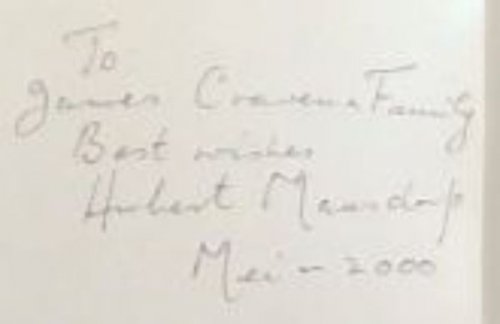 To
James Craven & Family
Best wishes
Hubert
Mei - 2000